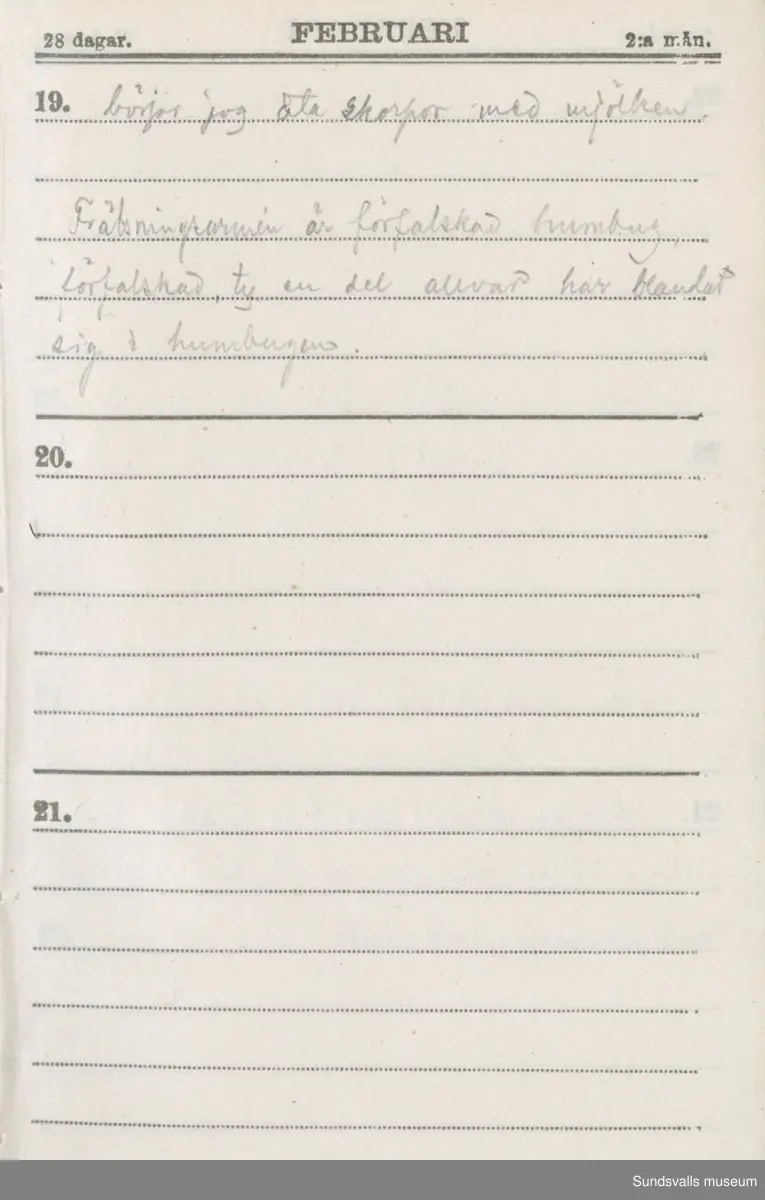 28 dagar. FEBRUARI 2:a mån.
19. börjar jag äta skorpor med mjölken.
Frälsningsarmén är förfalskad humbug,
förfalskad, ty en del allvar har blandat
sig i humbugen.
20.
21.
Sundsvalls museum